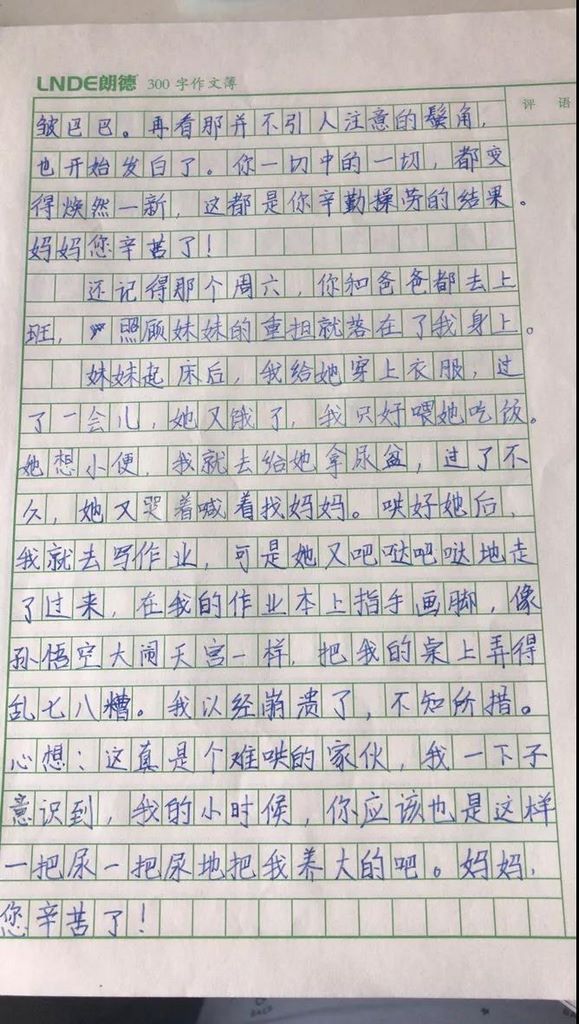 LNDE朗德 300字作文薄
评语
皱巴巴。再看那并不引人注意的鬓角，
也开始发白了。你一切中的一切，都变
得焕然一新，这都是你辛勤操劳的结果。
妈妈您辛苦了！
还记得那个周六，你和爸爸都去上
班，照顾妹妹的重担就落在了我身上。
妹妹起床后，我给她穿上衣服，过
了一会儿，她又饿了，我只好喂她吃饭。
她想小便，我就去给她拿尿盆，过了不
久，她又哭着喊着找妈妈。哄好她后，
我就去写作业，可是她又吧哒吧哒地走
了过来，在我的作业本上指手画脚，像
孙悟空大闹天宫一样，把我的桌上弄得
乱七八糟。我以经崩溃了，不知所措。
心想：这真是个难哄的家伙，我一下子
意识到，我的小时候，你应该也是这样
一把尿一把尿地把我养大的吧。妈妈，
您辛苦了！